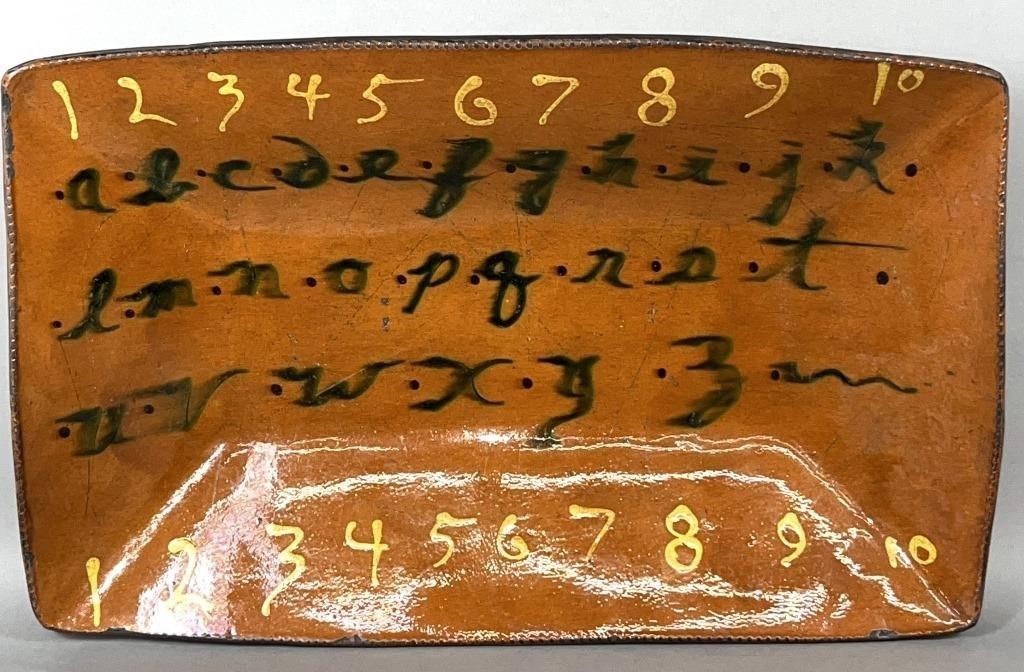 1 2 3 4 5 6 7 8 9 10
a b c d e f g h i j k
l m n o p q r s t
u v w x y z
1 2 3 4 5 6 7 8 9 10